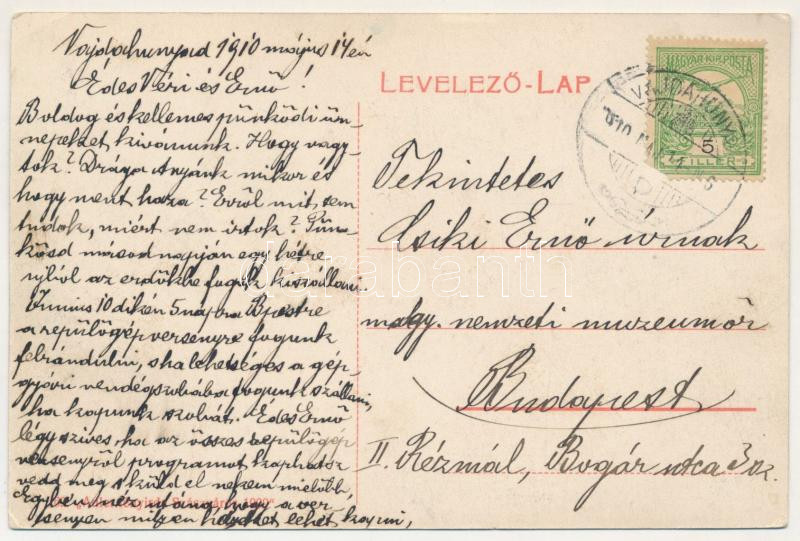 Vajdahunyad 1910 május 14én
Édes Véri és Ernő!
Boldog és kellemes pünkösdi ün-
nepeket kivánunk. Hogy vagy-
tok? Drága Anyánk mikor és
hogy ment haza? Erről mit sem
tudok, miért nem irtok? Pün-
kösd másod napján egy hétre
ujból az erdőkbe fogok kiszállani.
Junius 10 dikén 5 napra Bpestre
a repülőgép versenyre fogunk
felrándulni, s ha lehetséges a gép-
gyári vendégszobába fogunk szállani,
ha kapunk szobát. Édes Ernő
légy szives ha az összes repülőgép
versenyről programot kaphatsz
vedd meg s küld el nekem mielőbb,
Egyben nézz utána, hogy a ver-
senyen milyen helyeket lehet kapni,
LEVELEZŐ-LAP
MAGYAR KIR. POSTA
5
FILLÉR
VAJDAHUNYAD
Tekintetes
Csiki Ernő úrnak
magy. nemzeti muzeumőr
Budapest
II. Rézmál, Bogár utca 3 sz.
darabanth